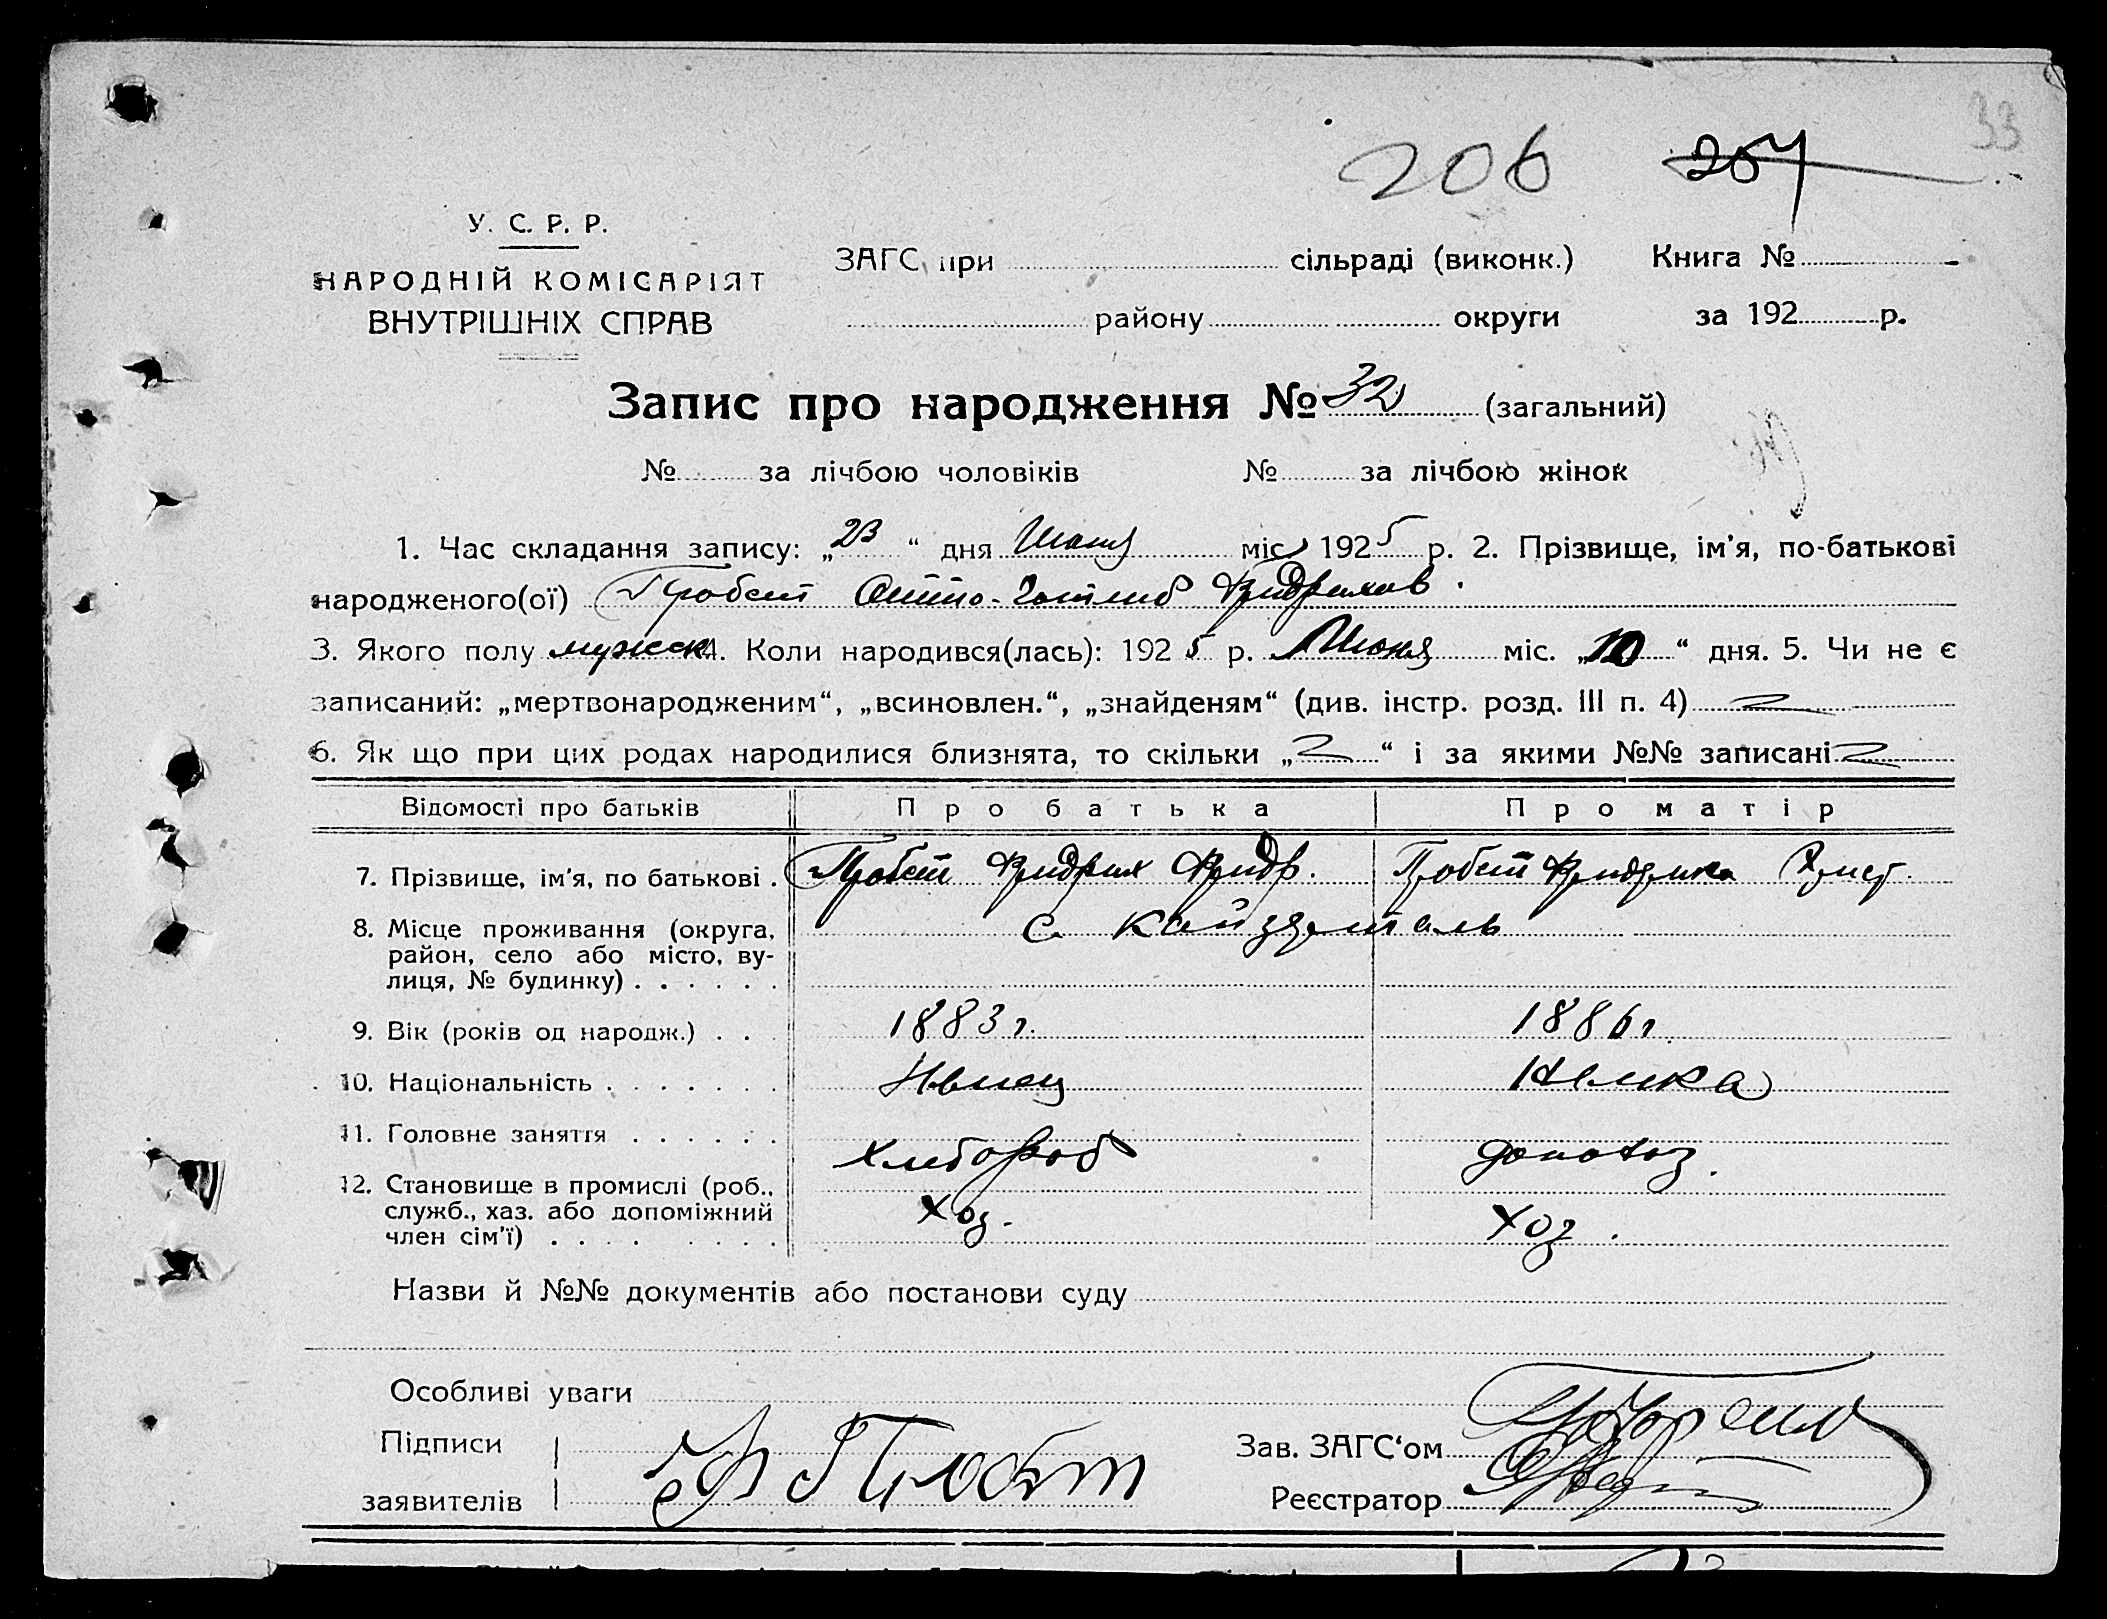 33
206 207
У. С. Р. Р.
НАРОДНІЙ КОМІСАРІЯТ
ВНУТРІШНІХ СПРАВ
ЗАГС при сільраді (виконк.) Книга №
району округи за 192 р.
Запис про народження № 32 (загальний)
№ за лічбою чоловіків № за лічбою жінок
1. Час складання запису: „23“ дня Июня міс. 1925 р. 2. Прізвище, ім'я, по-батькові
народженого(ої) Пробст Отто-Готлиб Фридрихов.
3. Якого полу мужск 4. Коли народився(лась): 1925 р. Июня міс. „10“ дня. 5. Чи не є
записаний: „мертвонародженим“, „всиновлен.“, „знайденям“ (див. інстр. розд. III п. 4)
6. Як що при цих родах народилися близнята, то скільки „ “ і за якими №№ записані
Відомості про батьків Про батька Про матір
7. Прізвище, ім'я, по батькові . Пробст Фридрих Фридр. Пробст Фридерика Христ.
8. Місце проживання (округа, район, село або місто, вулиця, № будинку) . . . . . . с.
9. Вік (років од народж.) . . . 1883 г. 1886 г
10. Національність . . . . . . . Немец Немка
11. Головне заняття . . . . . . Хлебороб домохоз.
12. Становище в промислі (роб., служб., хаз. або допоміжний член сім'ї) . . . . . . . . Хоз. Хоз.
Назви й №№ документів або постанови суду
Особливі уваги
Підписи
заявителів Фр Пробст
Зав. ЗАГС'ом
Реєстратор